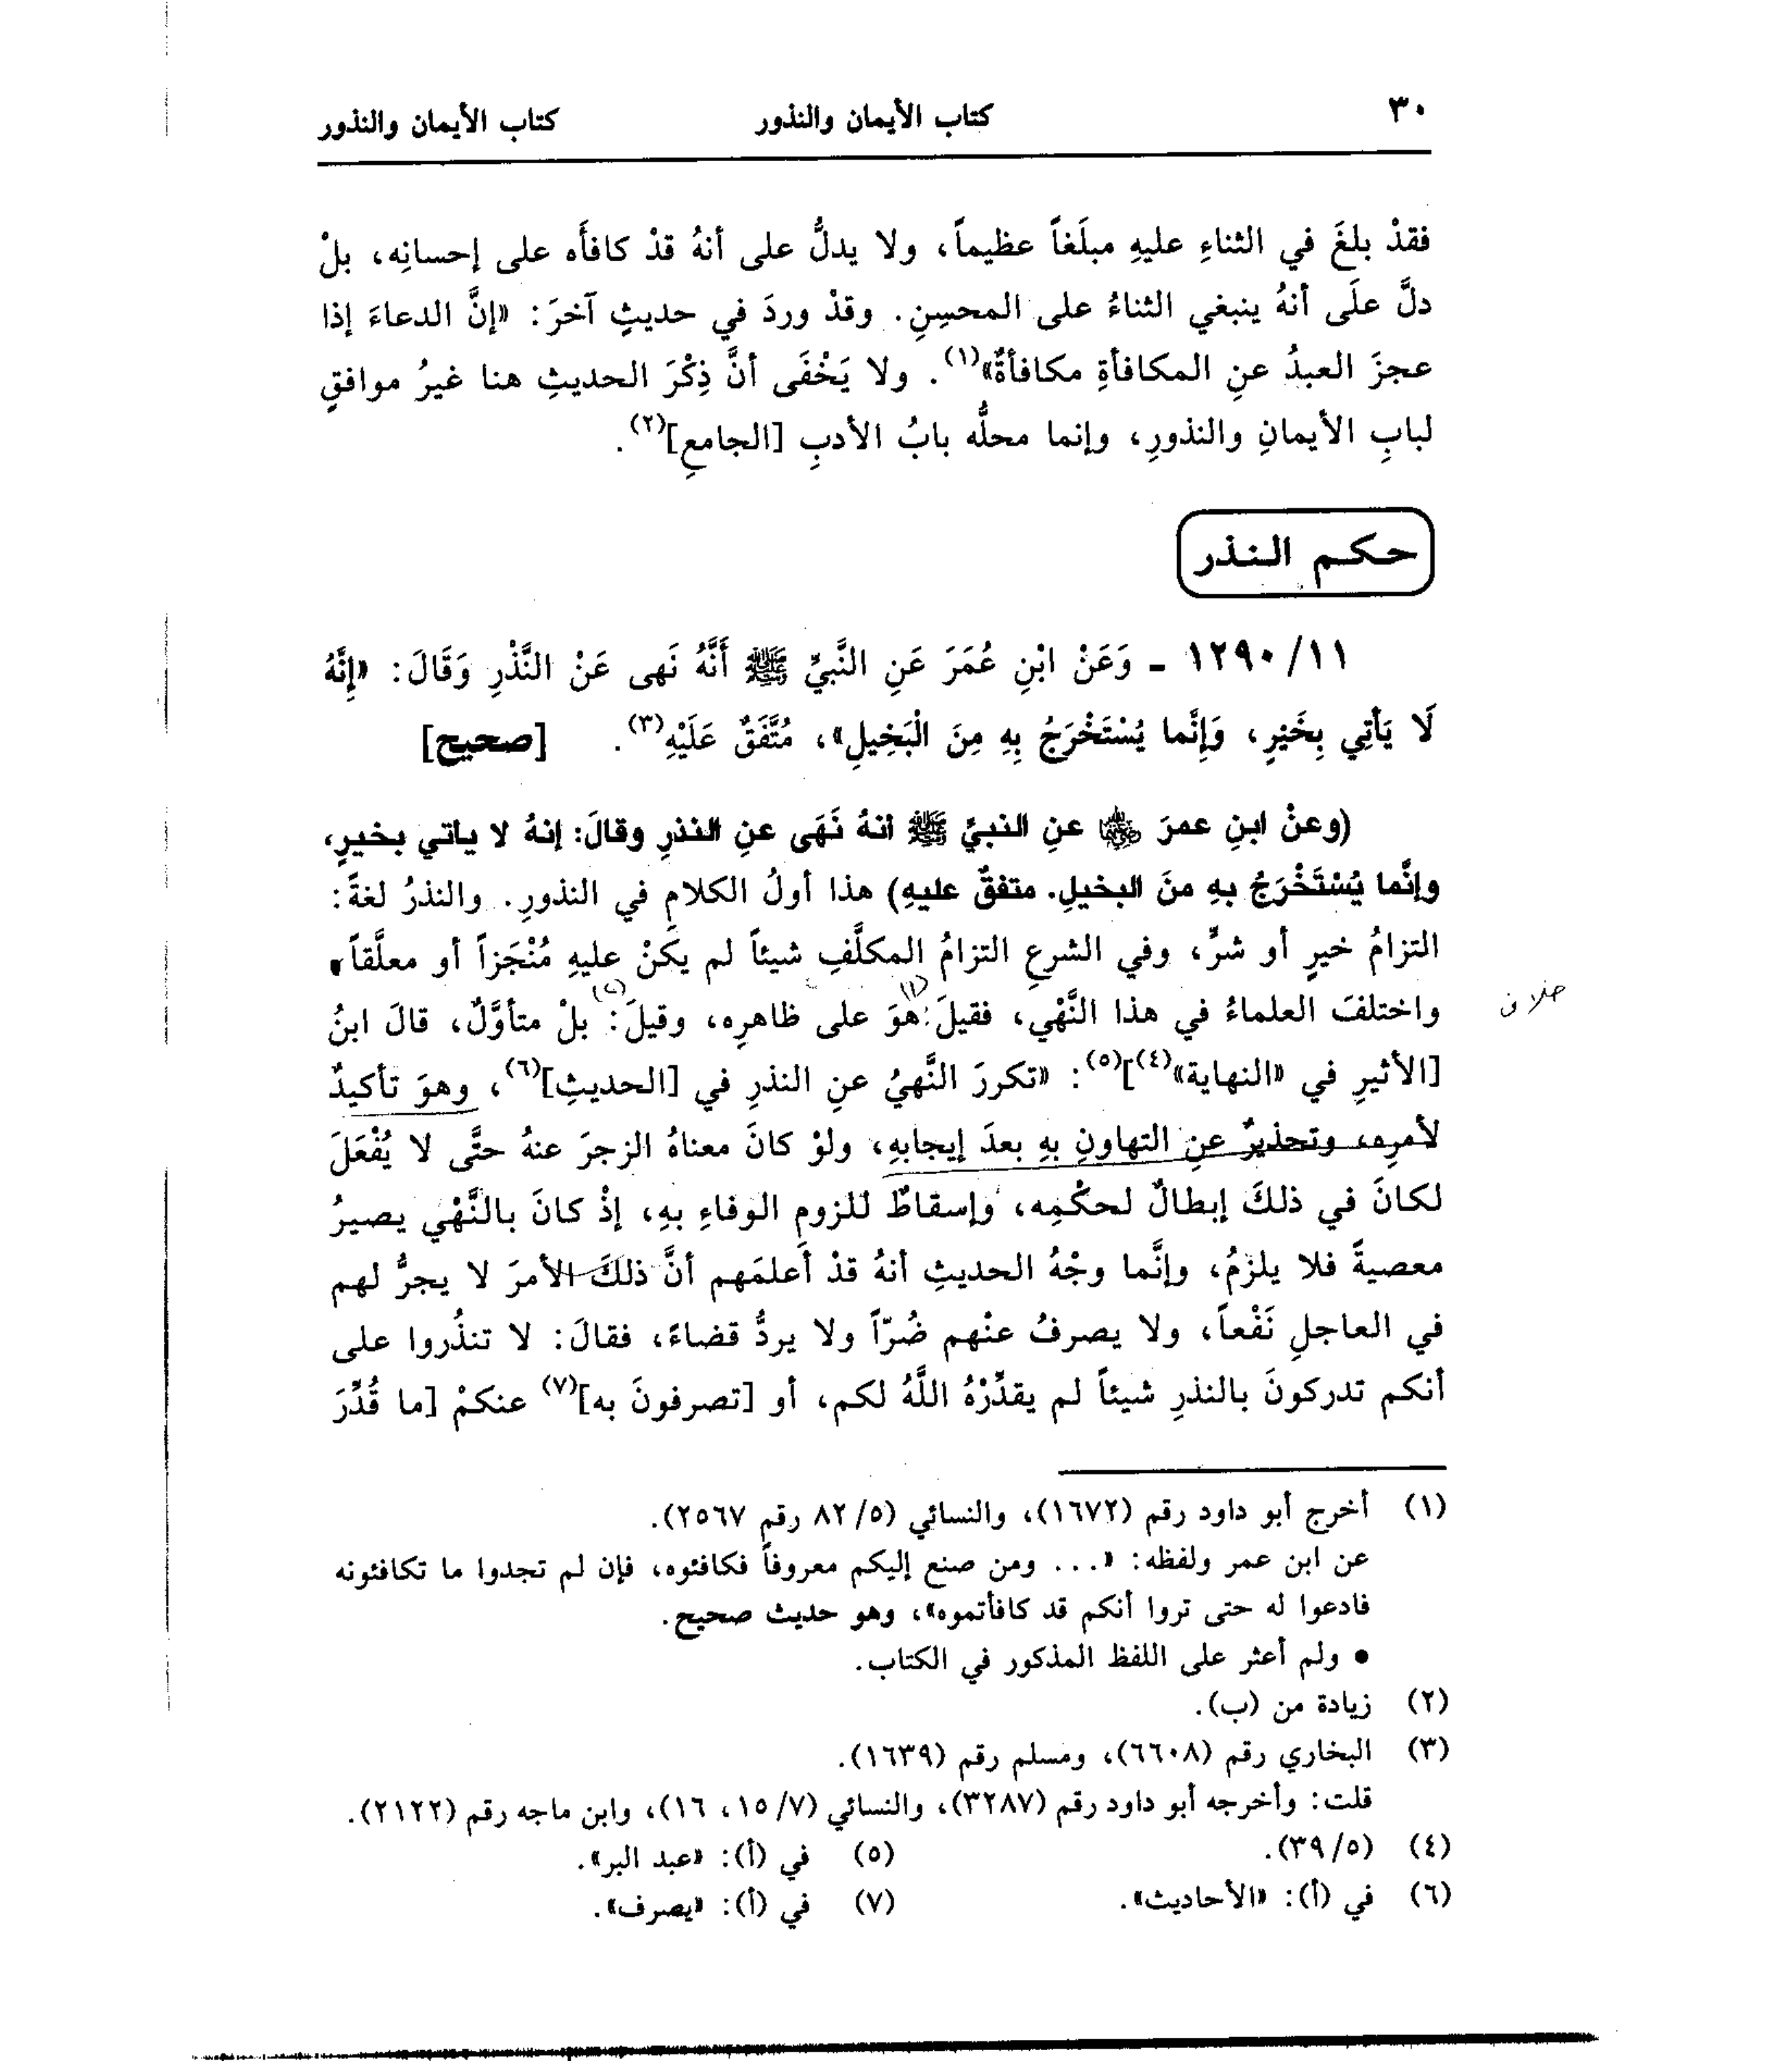 ٣٠ كتاب الأيمان والنذور كتاب الأيمان والنذور
فقدْ بلغَ في الثناءِ عليهِ مبلَغاً عظيماً، ولا يدلُّ على أنهُ قدْ كافأَه على إحسانِه، بلْ
دلَّ علَى أنهُ ينبغي الثناءُ على المحسِنِ. وقدْ وردَ في حديثٍ آخرَ: «إنَّ الدعاءَ إذا
عجزَ العبدُ عنِ المكافأةِ مكافأةٌ»(١). ولا يَخْفَى أنَّ ذِكْرَ الحديثِ هنا غيرُ موافقٍ
لبابِ الأيمانِ والنذورِ، وإنما محلُّه بابُ الأدبِ [الجامعِ](٢).
حكم النذر
١٢٩٠/١١ ـ وَعَنْ ابْنِ عُمَرَ عَنِ النَّبيِّ ﷺ أَنَّهُ نَهى عَنْ النَّذْرِ وَقَالَ: «إِنَّهُ
لَا يَأتِي بِخَيْرٍ، وَإِنَّما يُسْتَخْرَجُ بِهِ مِنَ الْبَخِيلِ»، مُتَّفَقٌ عَلَيْهِ(٣). [صحيح]
(وعنْ ابنِ عمرَ عنِ النبيِّ ﷺ أنهُ نَهَى عنِ النذرِ وقالَ: إنهُ لا ياتي بخيرٍ،
وإنَّما يُسْتَخْرَجُ بهِ منَ البخيلِ. متفقٌ عليهِ) هذا أولُ الكلامِ في النذورِ. والنذرُ لغةً:
التزامُ خيرٍ أو شرٍّ، وفي الشرعِ التزامُ المكلَّفِ شيئاً لم يكنْ عليهِ مُنْجَزاً أو معلَّقاً،
واختلفَ العلماءُ في هذا النَّهْي، فقيلَ: هوَ على ظاهرِه، وقيلَ: بلْ متأوَّلٌ، قالَ ابنُ
[الأثيرِ في «النهاية»(٤)](٥): «تكررَ النَّهيُ عنِ النذرِ في [الحديثِ](٦)، وهوَ تأكيدٌ
لأمرِه، وتحذيرٌ عنِ التهاونِ بهِ بعدَ إيجابهِ، ولوْ كانَ معناهُ الزجرَ عنهُ حتَّى لا يُفْعَلَ
لكانَ في ذلكَ إبطالٌ لحكْمِه، وإسقاطٌ للزومِ الوفاءِ بهِ، إذْ كانَ بالنَّهْي يصيرُ
معصيةً فلا يلزمُ، وإنَّما وجْهُ الحديثِ أنهُ قدْ أَعلمَهم أنَّ ذلكَ الأمرَ لا يجرُّ لهم
في العاجلِ نَفْعاً، ولا يصرفُ عنْهم ضُرّاً ولا يردُّ قضاءً، فقالَ: لا تنذُروا على
أنكم تدركونَ بالنذرِ شيئاً لم يقدِّرْهُ اللَّهُ لكم، أو [تصرفونَ به](٧) عنكمْ [ما قُدِّرَ
(١) أخرج أبو داود رقم (١٦٧٢)، والنسائي (٥/ ٨٢ رقم ٢٥٦٧).
عن ابن عمر ولفظه: «... ومن صنع إليكم معروفاً فكافئوه، فإن لم تجدوا ما تكافئونه
فادعوا له حتى تروا أنكم قد كافأتموه»، وهو حديث صحيح.
• ولم أعثر على اللفظ المذكور في الكتاب.
(٢) زيادة من (ب).
(٣) البخاري رقم (٦٦٠٨)، ومسلم رقم (١٦٣٩).
قلت: وأخرجه أبو داود رقم (٣٢٨٧)، والنسائي (٧/ ١٥، ١٦)، وابن ماجه رقم (٢١٢٢).
(٤) (٥/ ٣٩). (٥) في (أ): «عبد البر».
(٦) في (أ): «الأحاديث». (٧) في (أ): «يصرف».